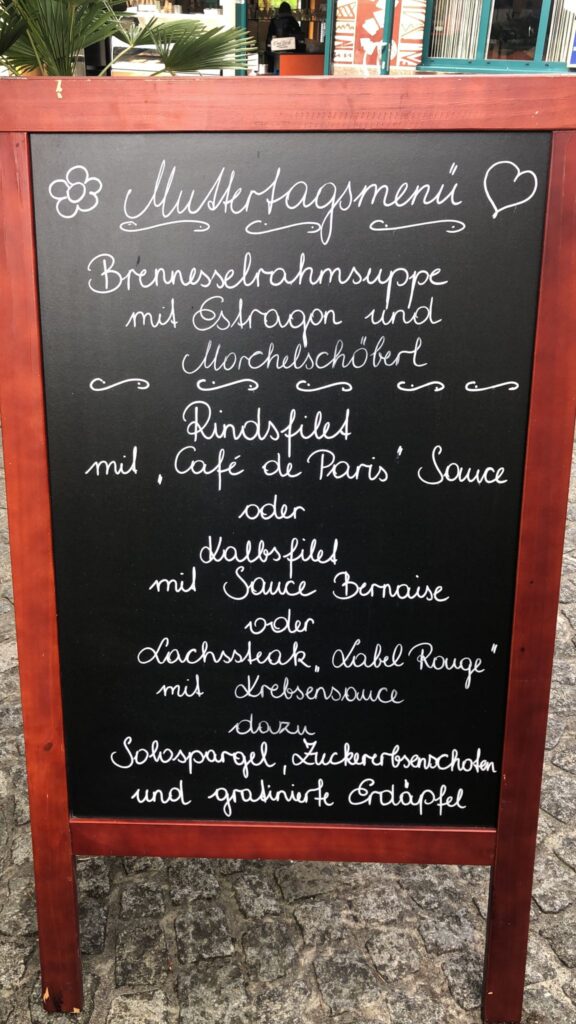 Muttertagsmenü
Brennesselrahmsuppe
mit Estragon und
Morchelschöberl
Rindsfilet
mit „Café de Paris" Sauce
oder
Kalbsfilet
mit Sauce Bernaise
oder
Lachssteak „Label Rouge"
mit Krebsensauce
dazu
Solospargel, Zuckererbsenschoten
und gratinierte Erdäpfel